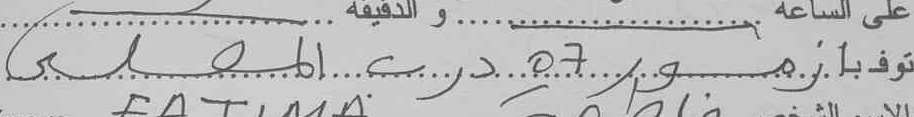 على الساعة ........ و الدقيقة ........
توف بـا زمـــور 07 درب المصلى
الاسم الشخصي فاطمة FATIMA